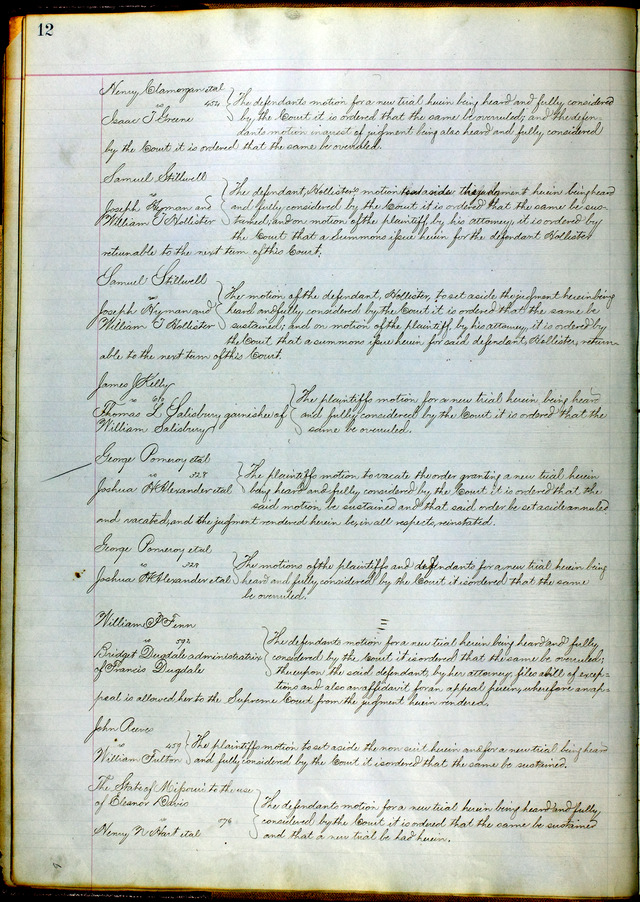 12
Henry Clamorgan etal
vs 454
Isaac T Greene
The defendants motion for a new trial herein being heard and fully considered
by the Court it is ordered that the same be overruled; and the defen-
dants motion in arrest of judgment being also heard and fully considered
by the Court it is ordered that the same be overruled.
Samuel Stillwell
vs
Joseph Hyman and
William T Hollister
The defendant, Hollister's motion to set aside the judgment herein being heard
and fully considered by the Court it is ordered that the same be sus-
tained; and on motion of the plaintiff by his attorney, it is ordered by
the Court that a Summons issue herein for the defendant Hollister
returnable to the next term of this Court.
Samuel Stillwell
vs
Joseph Hyman and
William T Hollister
The motion of the defendant, Hollister, to set aside the judgment herein being
heard and fully considered by the Court it is ordered that the same be
sustained; and on motion of the plaintiff by his attorney, it is ordered by
the Court that a summons issue herein for said defendant, Hollister, return-
able to the next term of this Court
James J Kelly
vs
Thomas L Salisbury garnishee of
William Salisbury
The plaintiffs motion for a new trial herein being heard
and fully considered by the Court it is ordered that the
same be overruled.
George Pomeroy etal
vs 328
Joshua H Alexander etal
The plaintiffs motion to vacate the order granting a new trial herein
being heard and fully considered by the Court it is ordered that the
said motion be sustained and that said order be set aside annuled
and vacated, and the judgment rendered herein be, in all respects, reinstated.
George Pomeroy etal
vs 328
Joshua H Alexander etal
The motions of the plaintiffs and defendants for a new trial herein being
heard and fully considered by the Court it is ordered that the same
be overruled.
William P Fenn
vs 592
Bridget Dugdale administratrix
of Francis Dugdale
The defendants motion for a new trial herein being heard and fully
considered by the Court it is ordered that the same be overruled;
thereupon the said defendant, by her attorney, files a bill of excep-
tions and also an affidavit for an appeal herein, wherefore an ap-
peal is allowed her to the Supreme Court from the judgment herein rendered.
John Reeves
vs 459
William Fulton
The plaintiffs motion to set aside the non suit herein and for a new trial being heard
and fully considered by the Court it is ordered that the same be sustained.
The State of Missouri to the use
of Eleanor Davis
vs 576
Henry N Hart etal
The defendants motion for a new trial herein being heard and fully
considered by the Court it is ordered that the same be sustained
and that a new trial be had herein.